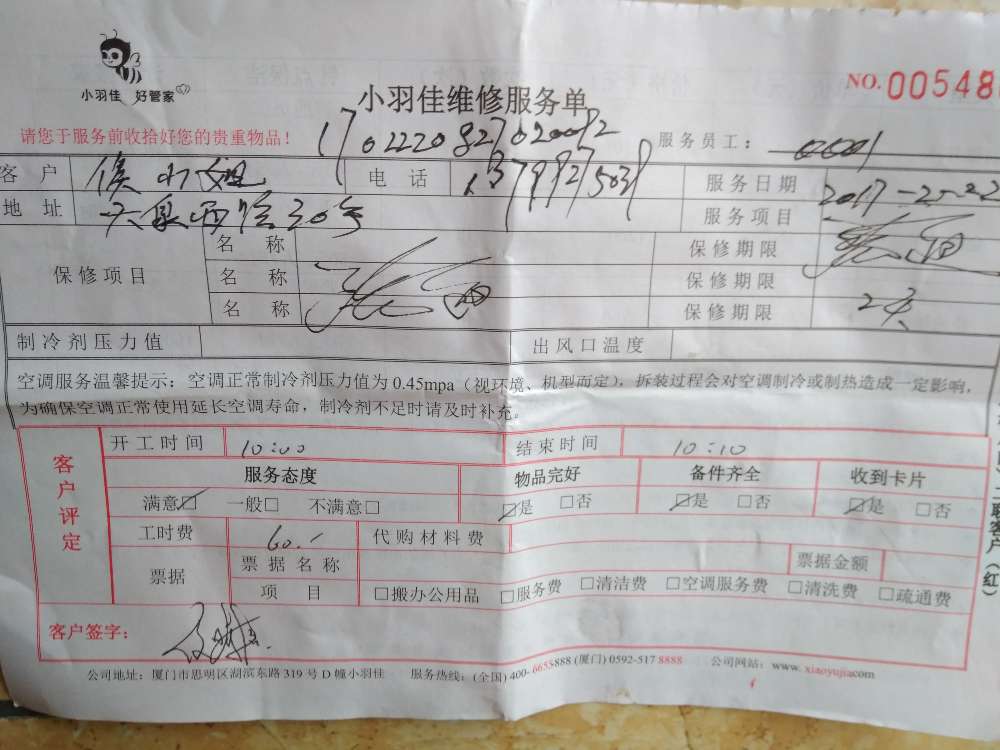 小羽佳 好管家
NO.00548
小羽佳维修服务单
请您于服务前收拾好您的贵重物品！
17022208270200
服务员工：
客户 侯小姐 电话 服务日期 2017-2-22
地址 西路30号 服务项目
保修项目 名称 保修期限
名称 保修期限
名称 保修期限
制冷剂压力值 出风口温度
空调服务温馨提示：空调正常制冷剂压力值为0.45mpa（视环境、机型而定），拆装过程会对空调制冷或制热造成一定影响，
为确保空调正常使用延长空调寿命，制冷剂不足时请及时补充。
客户评定
开工时间 10:00 结束时间 10:10
服务态度 物品完好 备件齐全 收到卡片
满意☑ 一般□ 不满意□ ☑是 □否 ☑是 □否 ☑是 □否
工时费 60.- 代购材料费
票据 票据名称 票据金额
项目 □搬办公用品 □服务费 □清洁费 □空调服务费 □清洗费 □疏通费
客户签字：
公司地址：厦门市思明区湖滨东路319号D幢小羽佳 服务热线：(全国)400-6655888(厦门)0592-5178888 公司网站：www.xiaoyujia.com
二联客户（红）